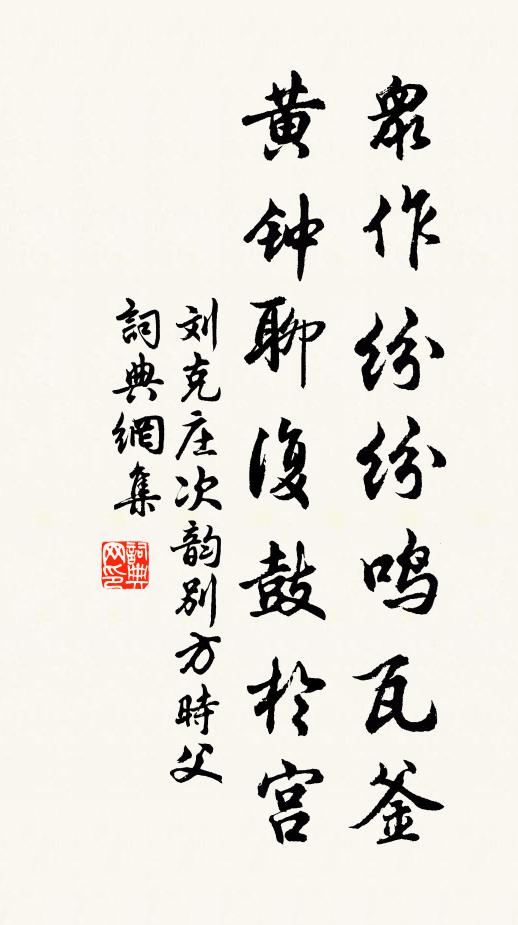 眾作纷纷鸣瓦釜
黄钟聊復鼓於宫
刘克庄次韵別方時父
詞典網集
詞典网印